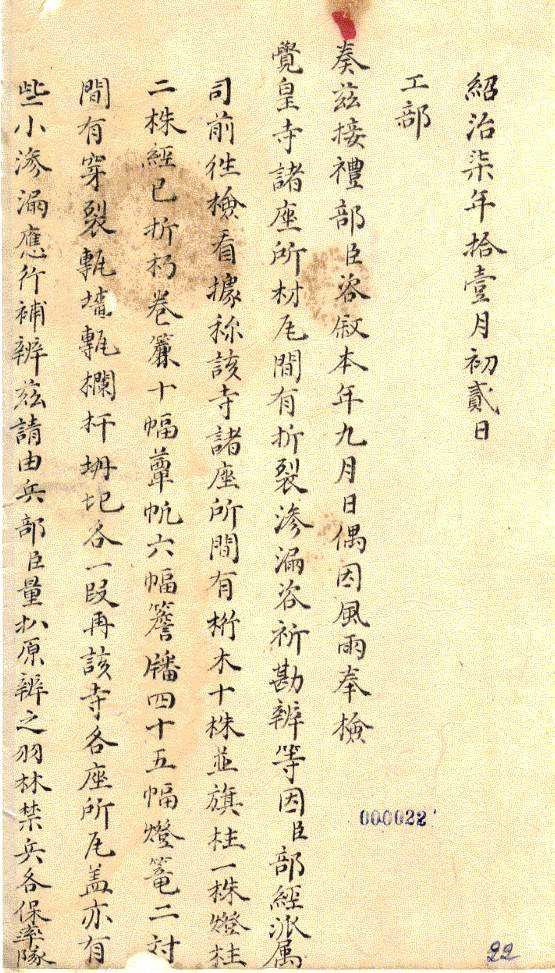 紹治柒年拾壹月初貳日
工部
奏茲接禮部臣咨敘本年九月日偶因風雨奉檢
覺皇寺諸座所材瓦間有折裂滲漏咨祈勘辨等因臣部經派属
司前徃檢看據称該寺諸座所間有桁木十株並旗柱一株燈柱
二株經已折朽卷簾十幅蕈帆六幅簷牗四十五幅燈篭二対
間有穿裂甎墻甎欄杆坍圮各一段再該寺各座所瓦盖亦有
些小滲漏應行補辨茲請由兵部臣量扒原辨之羽林禁兵各保率隊
000022
22